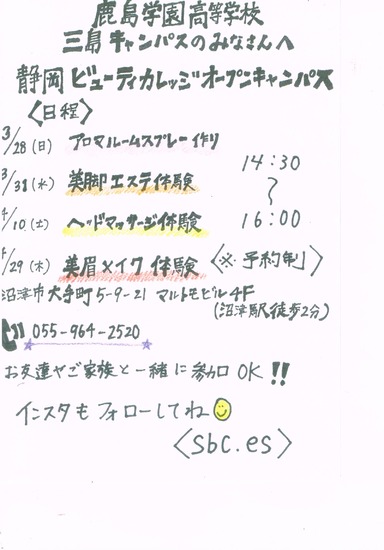 鹿島学園高等学校
三島キャンパスのみなさんへ
静岡ビューティカレッジオープンキャンパス
〈日程〉
3/28(日) アロマルームスプレー作り
3/31(水) 美脚エステ体験
4/10(土) ヘッドマッサージ体験
4/29(木) 美眉メイク体験 〈※予約制〉
14:30
〜
16:00
沼津市大手町5-9-21 マルトモビル4F
(沼津駅徒歩2分)
055-964-2520
お友達やご家族と一緒に参加OK!!
インスタもフォローしてね
〈sbc.es〉